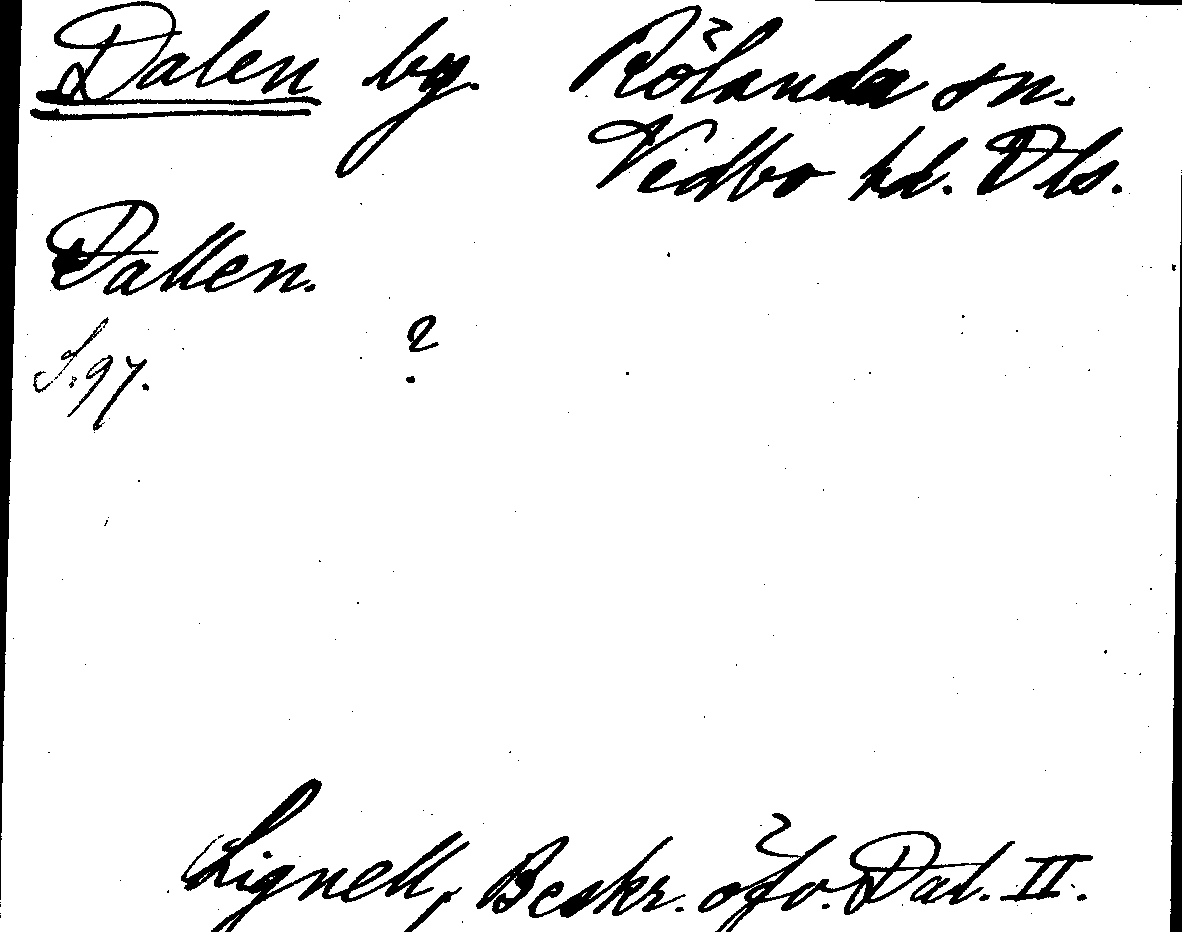 Dalen by. Rölanda sn.
Vedbo hd. Dls.
Dallen.
S. 97. ?
Lignell, Beskr. öfv. Dal. II.